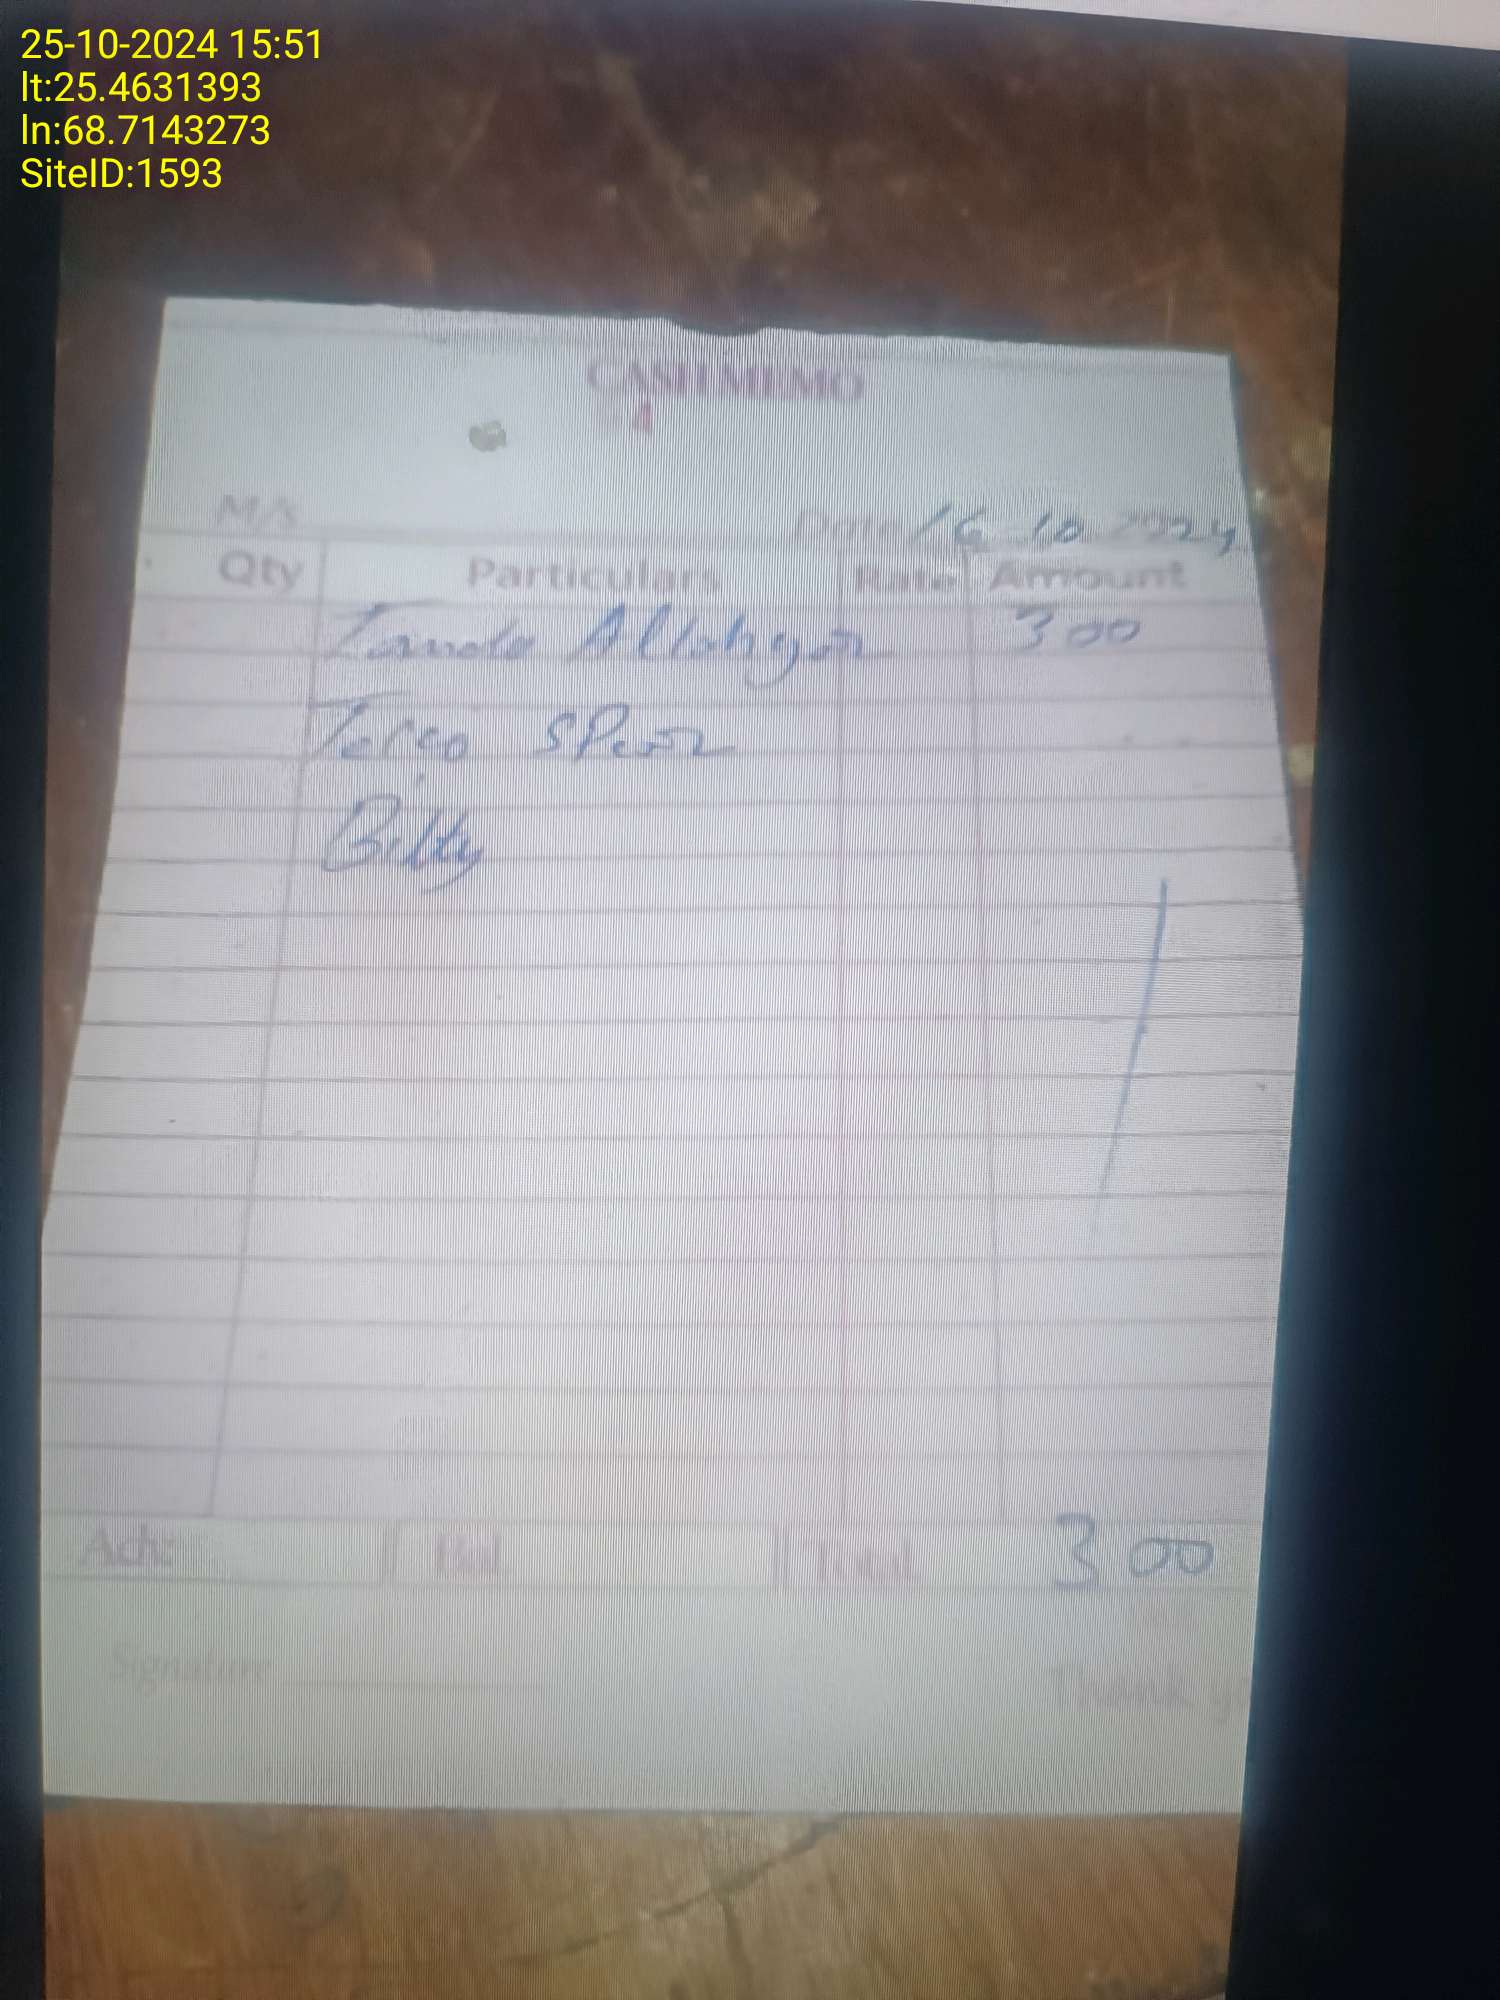 25-10-2024 15:51
lt:25.4631393
ln:68.7143273
SiteID:1593
CASH MEMO
M/s Date 16-10-2024
Qty Particulars Rate Amount
Tando Allahyar 300
Bilty
Adv: Bal Total 300
Signature Thank y